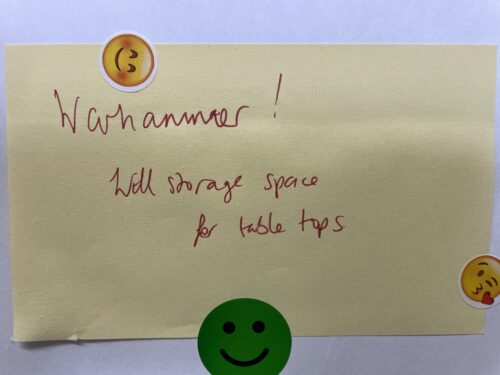 Warhammer!
Will storage space
for table tops